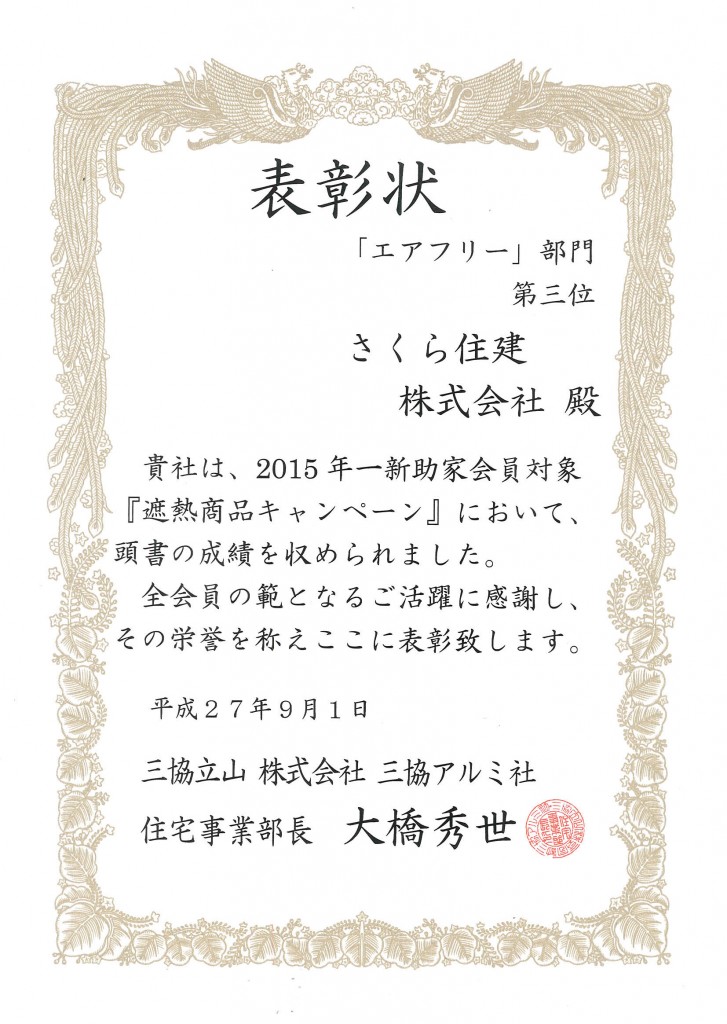 表彰状
「エアフリー」部門
第三位
さくら住建
株式会社 殿
貴社は、2015年一新助家会員対象
『遮熱商品キャンペーン』において、
頭書の成績を収められました。
全会員の範となるご活躍に感謝し、
その栄誉を称えここに表彰致します。
平成２７年９月１日
三協立山 株式会社 三協アルミ社
住宅事業部長 大橋秀世